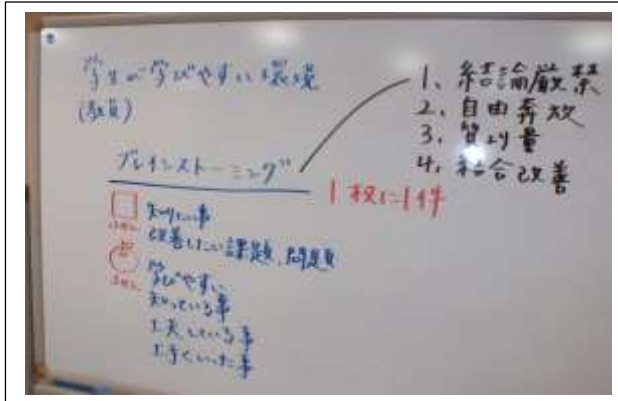 学生が学びやすい環境
(教員)
ブレインストーミング
1、結論厳禁
2、自由奔放
3、質より量
4、結合改善
1枚に1件
知りたい事
改善したい課題、問題点
学びやすい
知っている事
工夫している事
上手くいった事